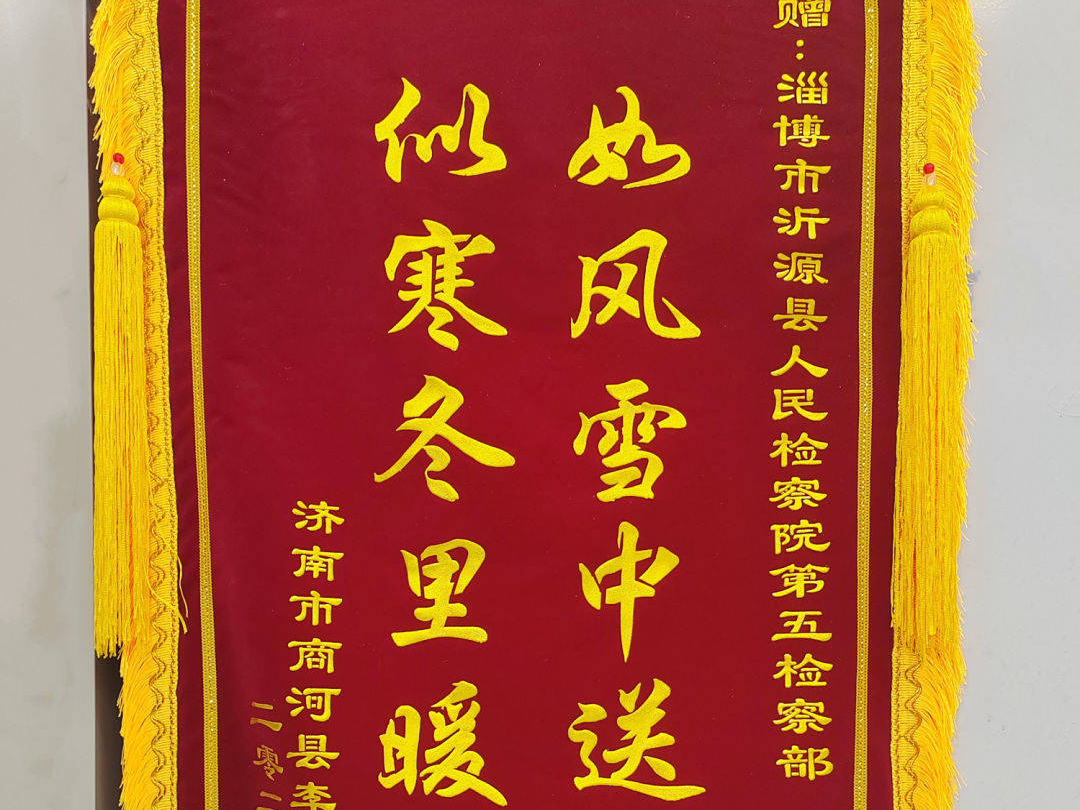 赠:淄博市沂源县人民检察院第五检察部
如风雪中送
似寒冬里暖
济南市商河县李
二零二